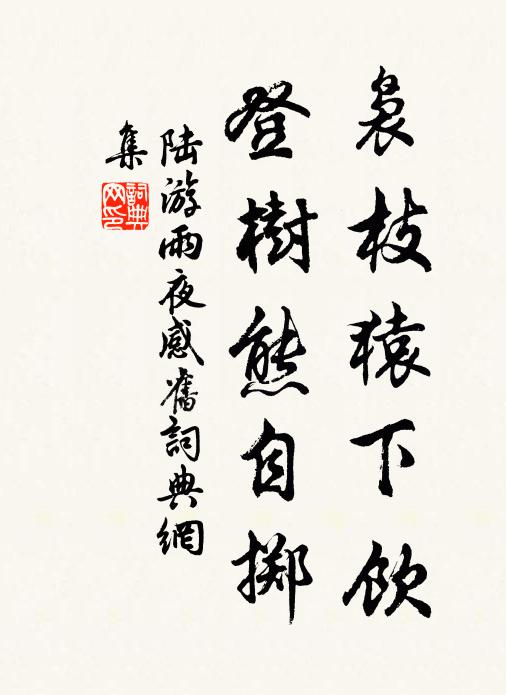 袅枝猿下飲
登樹熊自擲
陸游雨夜感舊詞典網
集
詞典网印